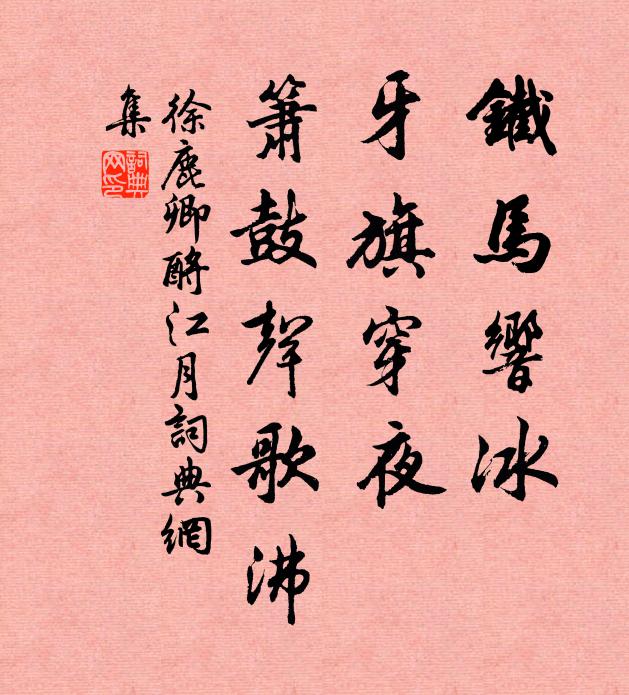 鐵馬響冰
牙旗穿夜
簫鼓聲歌沸
徐鹿卿酹江月詞典網
集
詞典
网印